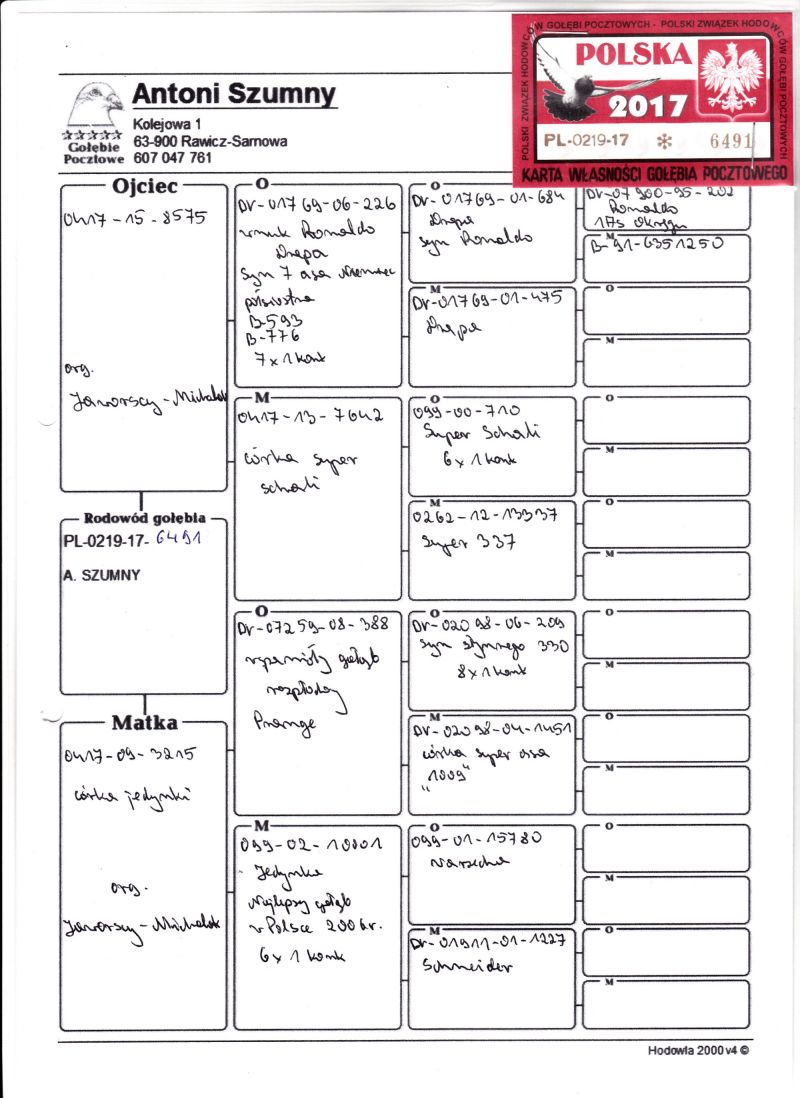 POLSKI ZWIĄZEK HODOWCÓW GOŁĘBI POCZTOWYCH - POLSKI ZWIĄZEK HODOWCÓW GOŁĘBI POCZTOWYCH
POLSKA
2017
PL-0219-17 * 6491
KARTA WŁASNOŚCI GOŁĘBIA POCZTOWEGO
Antoni Szumny
Kolejowa 1
63-900 Rawicz-Sarnowa
607 047 761
Gołębie
Pocztowe
Ojciec
0417-15-8575
org.
Jaworscy-Michalak
Rodowód gołębia
PL-0219-17-6491
A. SZUMNY
Matka
0417-09-3215
córka jedynki
org.
Jaworscy-Michalak
O
DV-01769-06-226
wnuk Ronaldo
Drapa
syn 7 asa Niemiec
półsiostra
B-593
B-776
7x1konk
M
0417-13-7642
córka super
schali
O
DV-07259-08-388
wspaniały gołąb
rozpłodowy
Prange
M
099-02-10001
Jedynka
Najlepszy gołąb
w Polsce 2006r.
6x1konk
O
DV-01769-01-684
Drapa
syn Ronaldo
M
DV-01769-01-475
Drapa
O
099-00-710
Super Schali
6x1konk
M
0262-12-13337
Super 337
O
DV-02098-06-209
syn słynnego 330
8x1konk
M
DV-02098-04-1451
córka super asa
"1009"
O
099-01-15780
Warzecha
M
DV-01911-01-1227
Schneider
DV-07900-95-202
Ronaldo
17s Okręgu
M
B-91-6351250
O
M
O
M
O
M
O
M
O
M
O
M
O
M
Hodowla 2000v4 ©